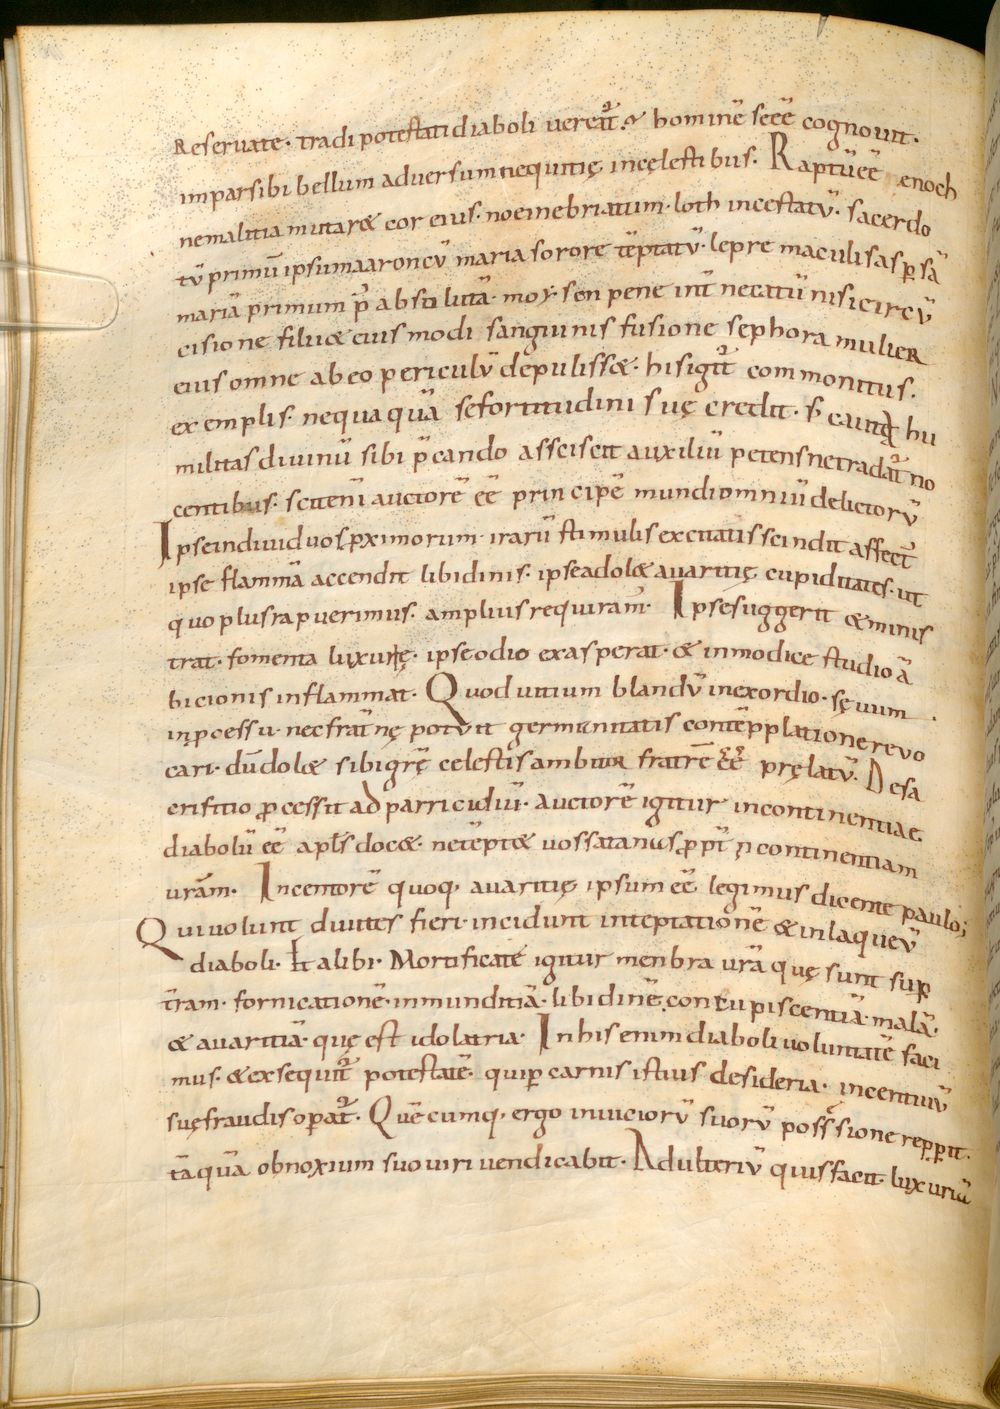 Reseruate· tradi potestati diaboli ueret᷑· & hominē seēē cognouit·
impar sibi bellum aduersum nequitię incęlestibus· Raptūēē enoch
nemalitia mutar& cor eius· noe inebriatum· loth incestatū· sacerdo
tū primū ipsum aaron cū maria sorore tēptatū· lepre maculis asꝑsā
mariā primum p̄ absolutā· moy·sen pene int̄ necatū nisi circū
cisione filii & eiusmodi sanguinis fusione sephora mulieR
eius omne ab eo periculū depulissæ· hisigit᷑ commonitus·
exemplis· nequaquā sefortitudini suę credit· s; caut& hu
militas diuinū sibi p̄cando asseiscit auxiliū petens netradat᷑ no
centibus· scit enī auctorē ēē principē mundi omniū delictorū
Ipse indiuiduos ꝓximorum· irarū stimulis excitatis scindit affect̄
ipse flammā accendit libidinis· ipse adol& auaritię cupiditates· ut
quo plus rapuerimus· amplius requiram̄· Ipse suggerit & minis
trat· fomenta luxurię· ipse odio exasperat· & inmodice studio ā
bicionis inflammat· Quod uitium blandū in exordio· sęuum
in ꝓcessu· nec frat̄nę potuit germanitatis contēpplatione reuo
cari· dūdol& sibi gr̄ę celestis ambitoR fratrē ēē pręlatū· Desa
crifitio ꝓcessit ad parricidiū· auctorē igitur incontinentiae
diabolū ēē apl̄s doc&· netēpt& uos satanas ꝓpt̄ incontinentiam
urām· Incentorē quoq· auaritię ipsum ēē legimus dicente paulo;
Qui uolunt diuites fieri· incidunt in teptationē & in laqueū
diaboli· It alibi· Mortificate igitur menbra urā quę sunt suꝑ
t̄ram· fornicationē· inmunditiā· libidinē· concupiscentiā· malā·
& auaritiā· quę est idolatria· In his enim diaboli uoluntatē faci
mus· & exsequit᷑ potestatē· qui ꝑ carnis istius desideria· incentiuū
suę fraudis oꝑat᷑· Quēcumq· ergo inuiciorū suorū possessione repꝑit·
tāquā obnoxium suo uiri uendicabit· Adulteriū quis facit· luxuriā